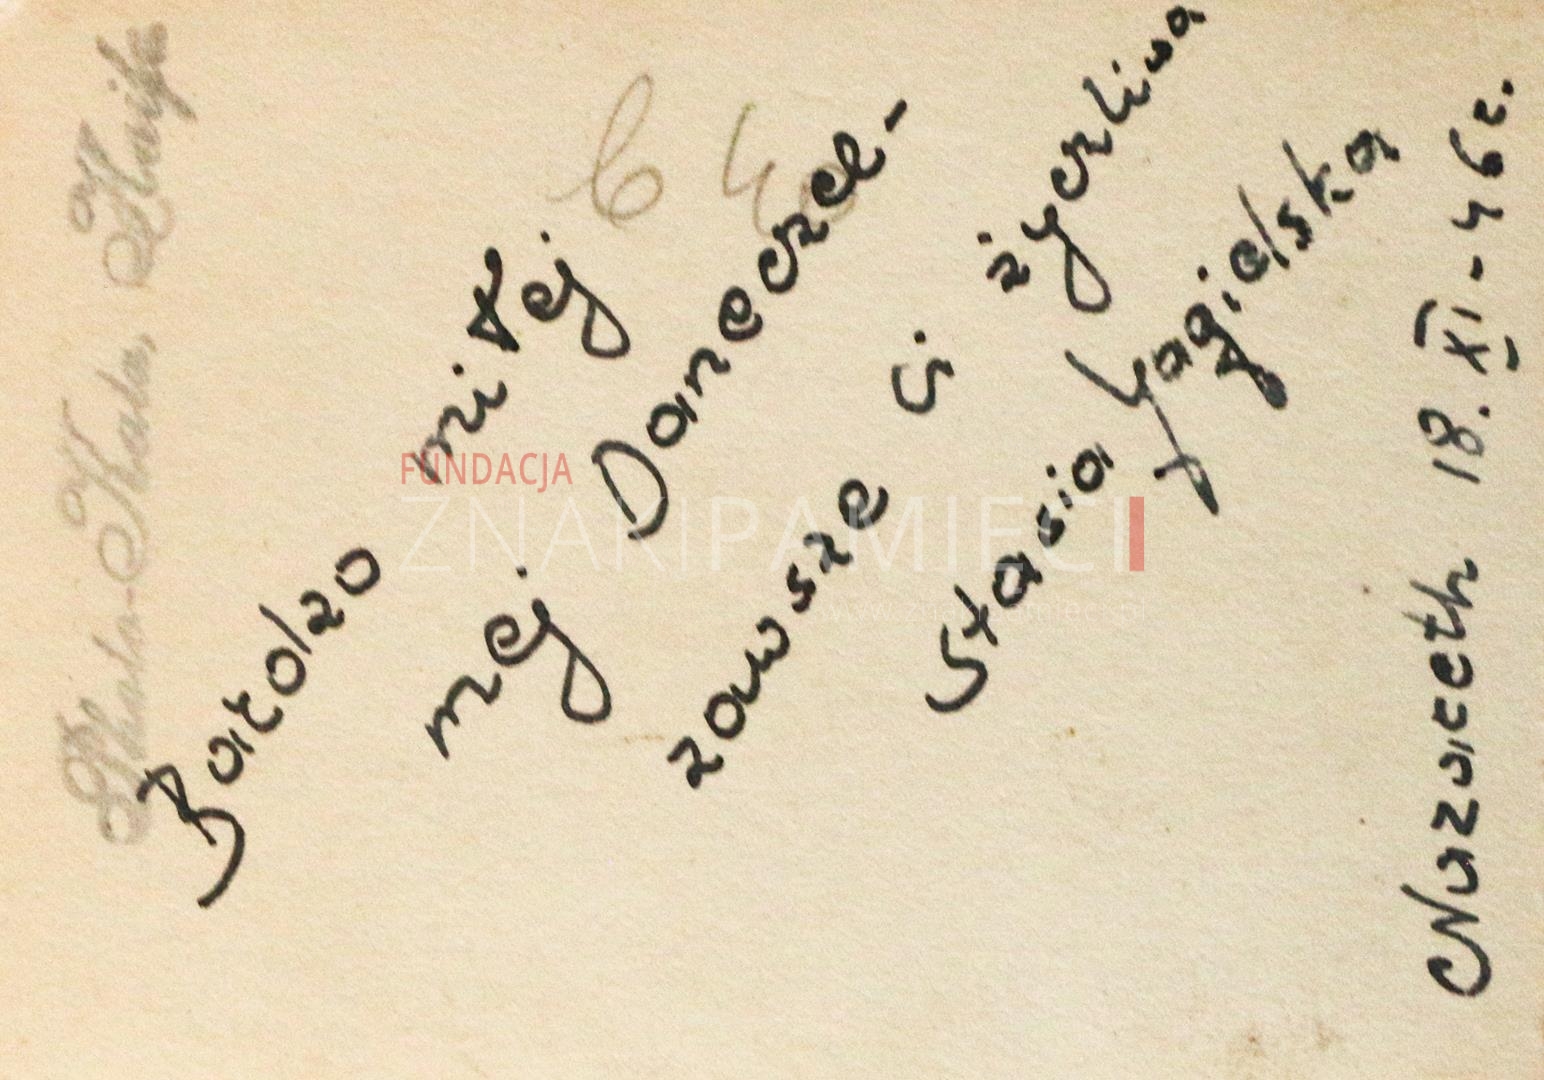 Photo-Kala, Haifa
Bardzo miłej
mej Daneczce-
zawsze Ci życzliwa
Stasia Jagielska
Nazareth 18.XI-46r.
FUNDACJA
ZNAKIPAMIECI
www.znakipamieci.pl